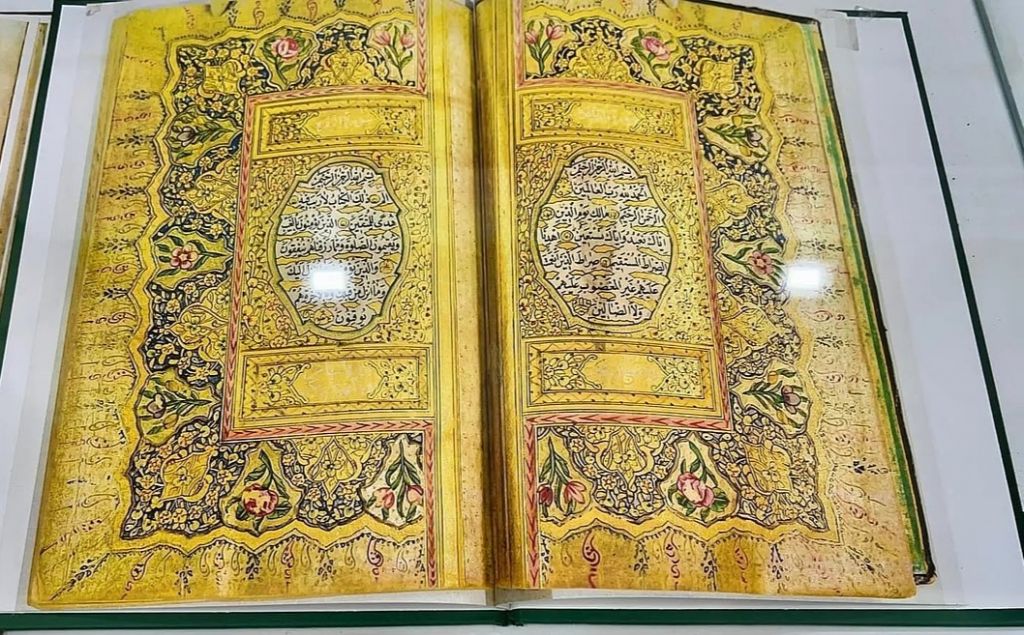 بسم الله الرحمن الرحيم
الحمد لله رب العالمين
الرحمن الرحيم مالك يوم الدين
اياك نعبد واياك نستعين اهدنا
الصراط المستقيم صراط الذين انعمت
عليهم غير المغضوب عليهم
ولا الضالين
بسم الله الرحمن الرحيم
الم ذلك الكتاب لا ريب فيه
هدى للمتقين الذين يؤمنون بالغيب
ويقيمون الصلوة ومما رزقناهم ينفقون
والذين اليك
وما انزل من قبلك وبالاخرة هم
يوقنون